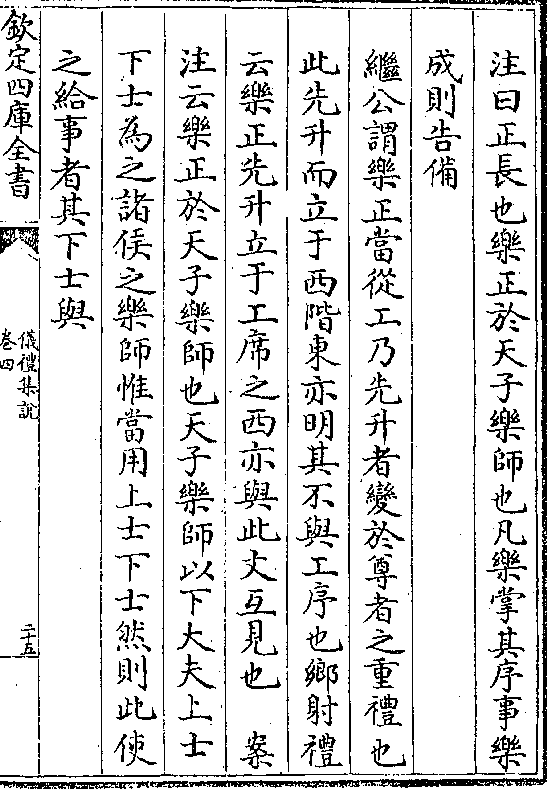 注曰正長也樂正於天子樂師也凡樂掌其序事樂
成則告備
繼公謂樂正當從工乃先升者變於尊者之重禮也
此先升而立于西階東亦明其不與工序也鄉射禮
云樂正先升立于工席之西亦與此文互見也　案
注云樂正於天子樂師也天子樂師以下大夫上士
下士為之諸侯之樂師惟當用上士下士然則此使
之給事者其下士與
欽定四庫全書
儀禮集說
卷四
二十五